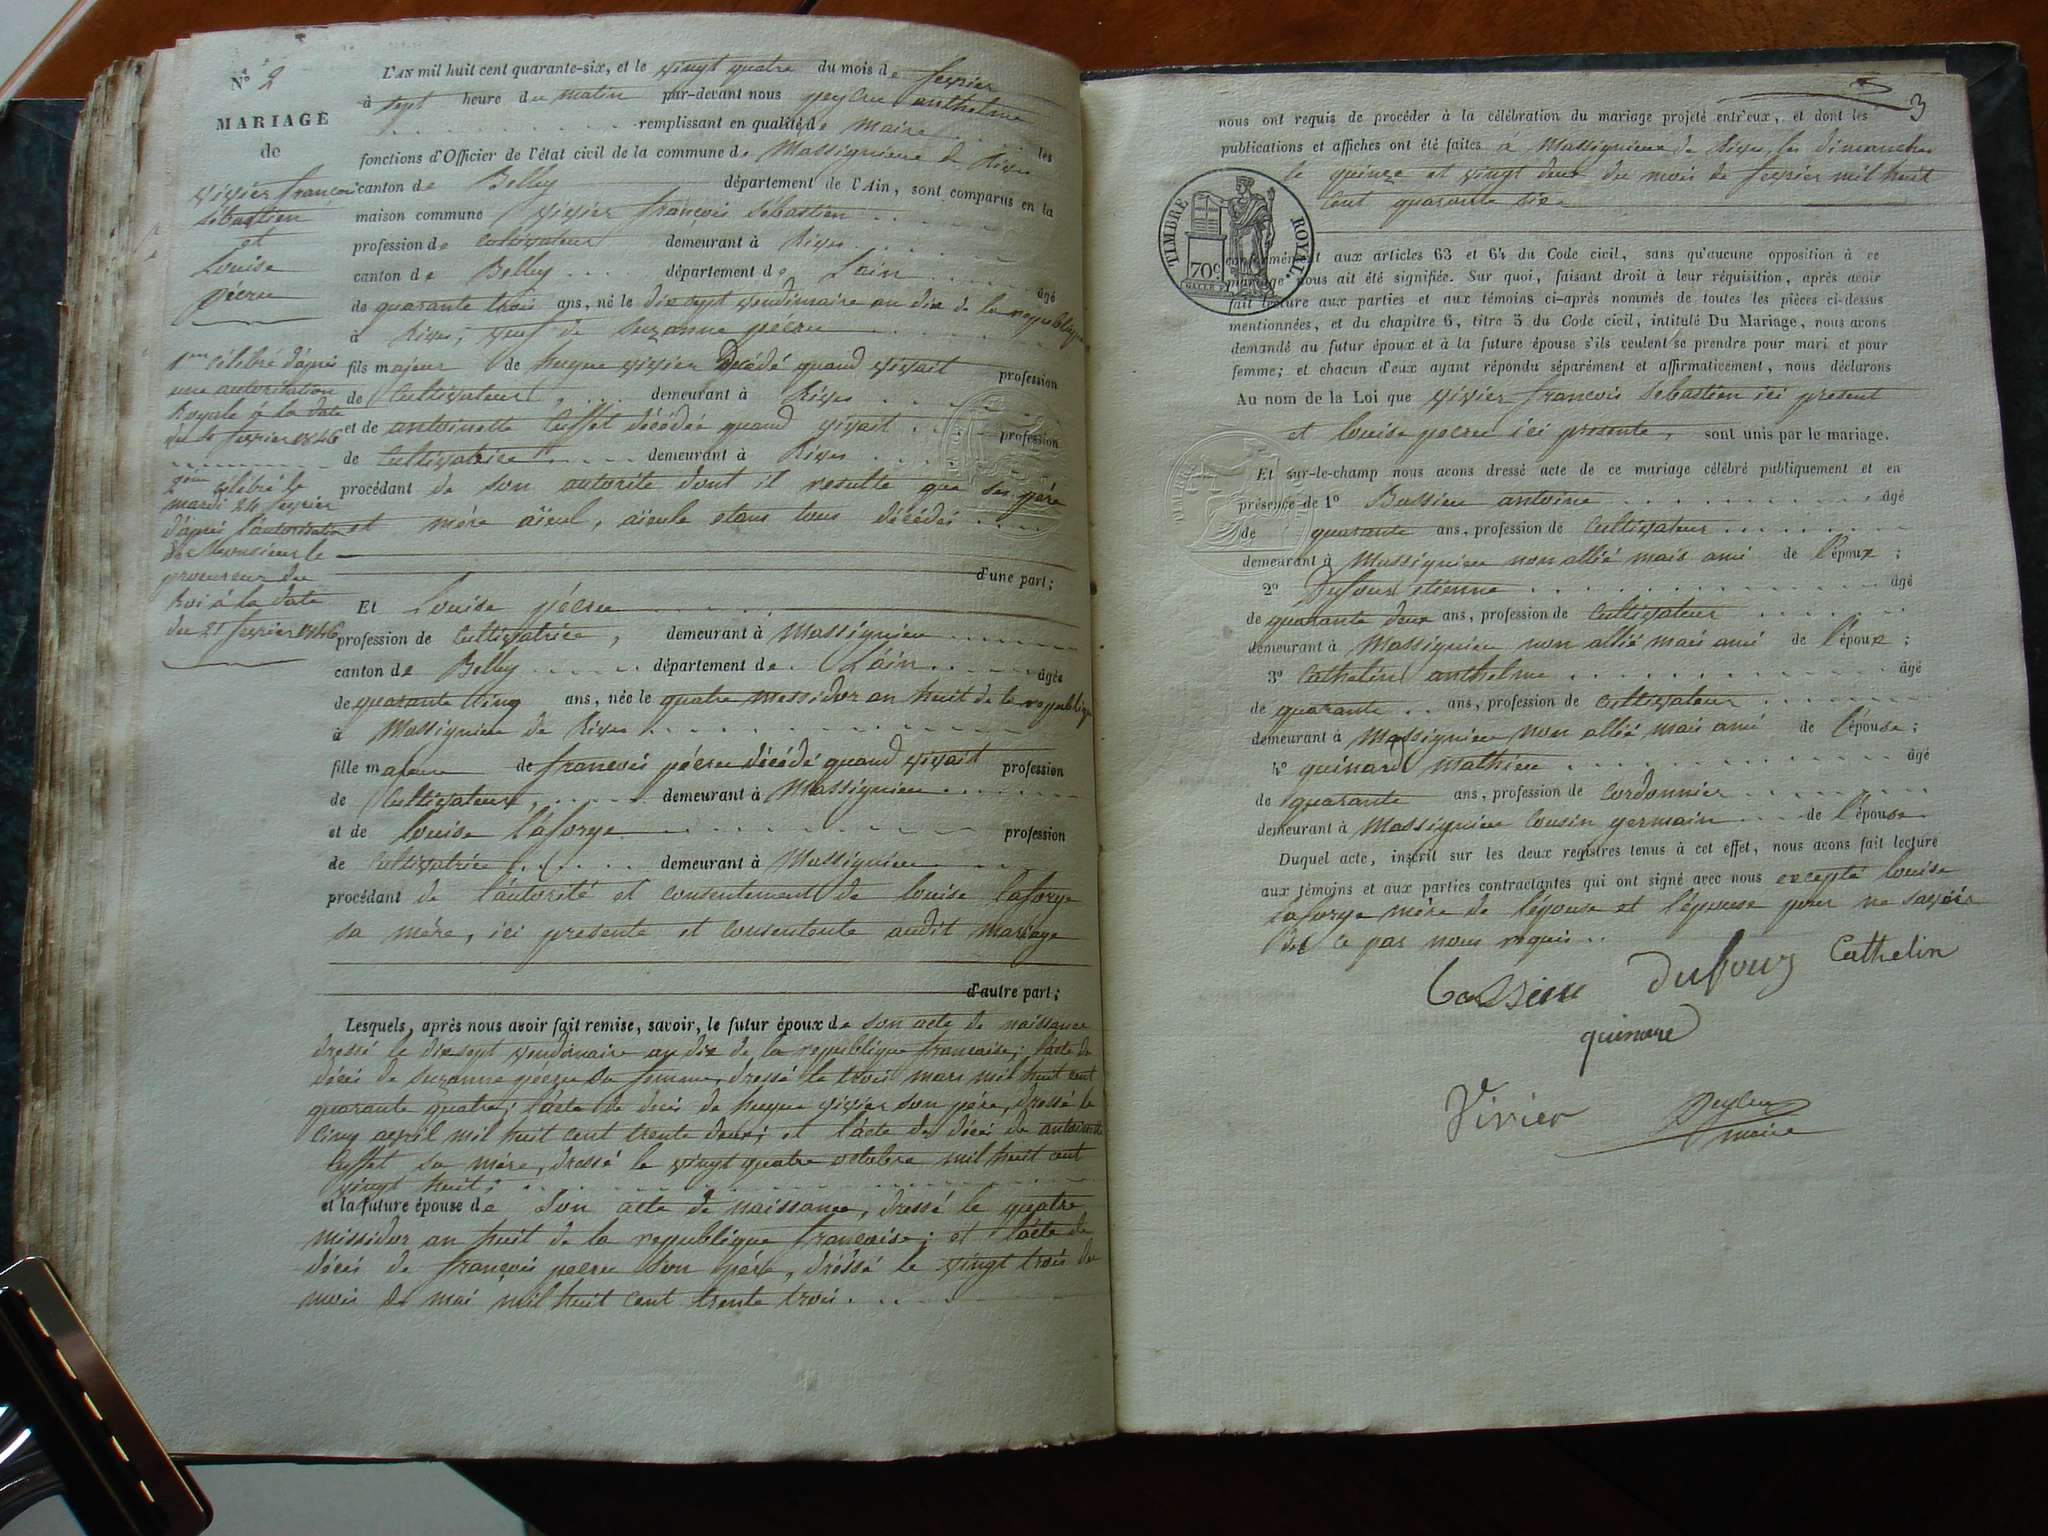 N° 2
MARIAGE
de
vivier françoi
sébastien
et
Louise
pécru
1er célébré d'aprés
une autorisation
Royale a la date
du 4 fevrier 1846
2em célébré le
mardi 24 fevrier
d'aprés l'autorisation
de Monsieur le
procureur du
Roi à la date
du 21 fevrier 1846
L'AN mil huit cent quarante-six, et le vingt quatre du mois de fevrier
à sept heure du matin par-devant nous peycru anthelme
remplissant en qualité de maire les
fonctions d'Officier de l'état civil de la commune de Massignieu de Rives
canton de Belley département de l'Ain, sont comparus en la
maison commune vivier françois sébastien
profession de cultivateur demeurant à Rives
canton de Belley département de Lain âgé
de quarante trois ans, né le dix sept vendimiaire an dix de la republique
à Rives, veuf de suzanne pécru
fils majeur de hugue vivier Décédé quand vivait profession
de Cultivateur, demeurant à Rives
et de antoinette Cusset décédée quand vivait profession
de Cultivatrice demeurant à Rives
procédant de son autorité dont il resulte que ses père
et mére aïeul, aïeule etans tous décédés
d'une part;
Et Louise pécru
profession de Cultivatrice, demeurant à Massignieu
canton de Belley département de Láin âgée
de quarante cinq ans, née le quatre messidor an huit de la republique
à Massignieu de Rives
fille majeure de francois pécru décédé quand vivait profession
de Cultivateur, demeurant à Massignieu
et de louise láforge profession
de Cultivatrice demeurant à Massignieu
procédant de láutorité et consentement de louise laforge
sa mére, ici presente et consentente audit mariage
d'autre part;
Lesquels, après nous avoir fait remise, savoir, le futur époux de son acte de naissance
dressé le dix sept vendimaire an dix de la republique francaise; lácte de
décés de suzanne pécru sa femme, dressé le trois mars mil huit cent
quarante quatre; lácte de decés de hugue vivier son pére, dressé le
cinq avril mil huit cent trente deux; et lácte de décés de antoinette
Cusset sa mére, dressé le vingt quatre octobre mil huit cent
vingt huit;
et la future épouse de son acte de naissance, dressé le quatre
missidor an huit de la republique francaise; et lácte de
décés de françois pecru son pére, dréssé le vingt trois du
mois de mai mil huit cent trente trois
3
nous ont requis de procéder à la célébration du mariage projeté entr'eux, et dont les
publications et affiches ont été faites à Massignieu de Rives, les dimanches
le quinze et vingt deux du mois de fevrier mil huit
Cent quarante six
TIMBRE ROYAL.
70c
conformément aux articles 63 et 64 du Code civil, sans qu'aucune opposition à ce
mariage nous ait été signifiée. Sur quoi, faisant droit à leur réquisition, après avoir
fait lecture aux parties et aux témoins ci-après nommés de toutes les pièces ci-dessus
mentionnées, et du chapitre 6, titre 5 du Code civil, intitulé Du Mariage, nous avons
demandé au futur époux et à la future épouse s'ils veulent se prendre pour mari et pour
femme; et chacun d'eux ayant répondu séparément et affirmativement, nous déclarons
Au nom de la Loi que vivier francois sebastien ici present
et louise pecru ici presente, sont unis par le mariage.
Et sur-le-champ nous avons dressé acte de ce mariage célébré publiquement et en
présence de 1° Bassieu antoine âgé
de quarante ans, profession de Cultivateur
demeurant à Massignieu non allié mais ami de l'époux;
2° Dufour etienne âgé
de quarante deux ans, profession de Cultivateur
demeurant à Massignieu non allié mais ami de l'époux;
3° Cathelin anthelme âgé
de quarante ans, profession de Cultivateur
demeurant à Massignieu non allié mais ami de l'épouse;
4° guinard Mathieu âgé
de quarante ans, profession de Cordonnier
demeurant à Massignieu Cousin germain de l'épouse
Duquel acte, inscrit sur les deux registres tenus à cet effet, nous avons fait lecture
aux témoins et aux parties contractantes qui ont signé avec nous excepté louise
láforge mére de lépouse et lépouse pour ne savoir
de ce par nous requis
Bassieu Dufour Cathelin
guinard
Vivier Peycru
maire